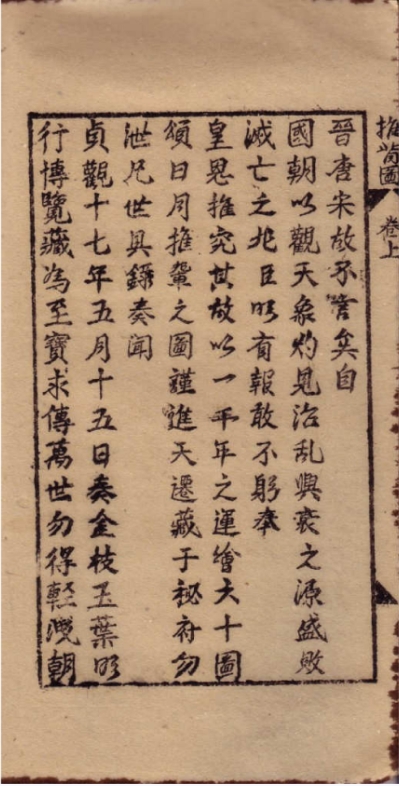 推背圖 卷上
晉唐宋故不言矣自
國朝以觀天象灼見治乱興衰之源盛敗
滅亡之兆臣明有報敢不躬奉
皇恩推究其故以一千年之運繪六十圖
頌曰同推輩之圖謹進天遷藏于秘府勿
泄凡世具錄奏聞
貞觀十七年五月十五日奏金枝玉葉明
行博覽藏為至寶求傳萬世勿得輕朝